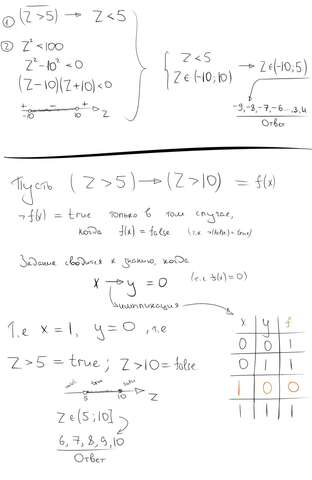 ① (Z>5) → Z<5
② Z²<100
Z²-10²<0
(Z-10)(Z+10)<0
+ - +
-10 10 Z
{ Z<5
Z∈(-10;10) → Z∈(-10;5)
-9,-8,-7,-6...3,4
Ответ
Пусть (Z>5)→(Z>10) = f(x)
¬f(x) = true только в том случае,
когда f(x)=false (т.к ¬(false)=true)
Задание сводится к знанию, когда
x → y = 0 (т.е f(x)=0)
импликация
Т.е x=1, y=0, т.е
Z>5 = true; Z>10=false
5 10 Z
Z∈(5;10]
6, 7, 8, 9, 10
Ответ
x y f
0 0 1
0 1 1
1 0 0
1 1 1